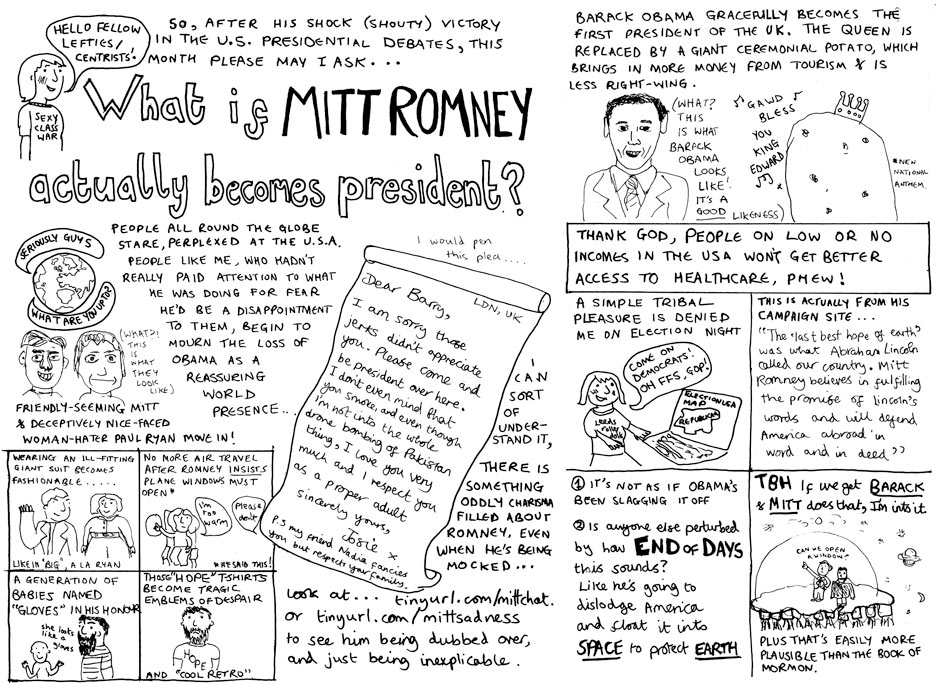 HELLO FELLOW
LEFTIES/
CENTRISTS!
SEXY
CLASS
WAR!
SO, AFTER HIS SHOCK (SHOUTY) VICTORY
IN THE U.S. PRESIDENTIAL DEBATES, THIS
MONTH PLEASE MAY I ASK...
What if MITT ROMNEY
actually becomes president?
SERIOUSLY GUYS
WHAT ARE YOU UP TO?
PEOPLE ALL ROUND THE GLOBE
STARE, PERPLEXED AT THE U.S.A.
PEOPLE LIKE ME, WHO HADN'T
REALLY PAID ATTENTION TO WHAT
HE WAS DOING FOR FEAR
HE'D BE A DISAPPOINTMENT
TO THEM, BEGIN TO
MOURN THE LOSS OF
OBAMA AS A
REASSURING
WORLD
PRESENCE...
(WHAT?!
THIS
IS
WHAT
THEY
LOOK
LIKE)
FRIENDLY-SEEMING MITT
& DECEPTIVELY NICE-FACED
WOMAN-HATER PAUL RYAN MOVE IN!
I would pen
this plea....
LDN, UK
Dear Barry,
I am sorry those
jerks didn't appreciate
you. Please come and
be president over here.
I don't even mind that
you smoke, and even though
I'm not into the whole
drone bombing of Pakistan
thing, I love you very
much and I respect you
as a proper adult
sincerely yours,
Josie x
P.S my friend Nadia fancies
you but respects your family.
I
CAN
SORT
OF
UNDER-
STAND IT,
THERE IS
SOMETHING
ODDLY CHARISMA
FILLED ABOUT
ROMNEY, EVEN
WHEN HE'S BEING
MOCKED...
Look at... tinyurl.com/mittchat.
or tinyurl.com/mittsadness
to see him being dubbed over,
and just being inexplicable.
WEARING AN ILL-FITTING
GIANT SUIT BECOMES
FASHIONABLE.....
LIKE IN "BIG", A LA RYAN
NO MORE AIR TRAVEL
AFTER ROMNEY INSISTS
PLANE WINDOWS MUST
OPEN*
I'm
too
warm
Please
don't
*HE SAID THIS!
A GENERATION OF
BABIES NAMED
"GLOVES" IN HIS HONOUR
she looks
like a
gloves
THOSE "HOPE" TSHIRTS
BECOME TRAGIC
EMBLEMS OF DESPAIR
HOPE
AND "COOL RETRO"
BARACK OBAMA GRACEFULLY BECOMES THE
FIRST PRESIDENT OF THE UK. THE QUEEN IS
REPLACED BY A GIANT CEREMONIAL POTATO, WHICH
BRINGS IN MORE MONEY FROM TOURISM & IS
LESS RIGHT-WING.
(WHAT?
THIS
IS WHAT
BARACK
OBAMA
LOOKS
LIKE!
IT'S A
GOOD LIKENESS)
GAWD
BLESS
YOU
KING
EDWARD
*
*NEW
NATIONAL
ANTHEM.
THANK GOD, PEOPLE ON LOW OR NO
INCOMES IN THE USA WON'T GET BETTER
ACCESS TO HEALTHCARE, PHEW!
A SIMPLE TRIBAL
PLEASURE IS DENIED
ME ON ELECTION NIGHT
COME ON
DEMOCRATS!
OH FFS, GOP!
ELECTION USA
MAP
REPUBLICAN
THIS IS ACTUALLY FROM HIS
CAMPAIGN SITE...
"The 'last best hope of earth'
was what Abraham Lincoln
called our country. Mitt
Romney believes in fulfilling
the promise of Lincoln's
words and will defend
America abroad in
word and in deed"
① IT'S NOT AS IF OBAMA'S
BEEN SLAGGING IT OFF
② Is anyone else perturbed
by how END OF DAYS
this sounds?
Like he's going to
dislodge America
and float it into
SPACE to protect EARTH
TBH If we get BARACK
& MITT does that, I'm into it
CAN WE OPEN
A WINDOW?
PLUS THAT'S EASILY MORE
PLAUSIBLE THAN THE BOOK OF
MORMON.